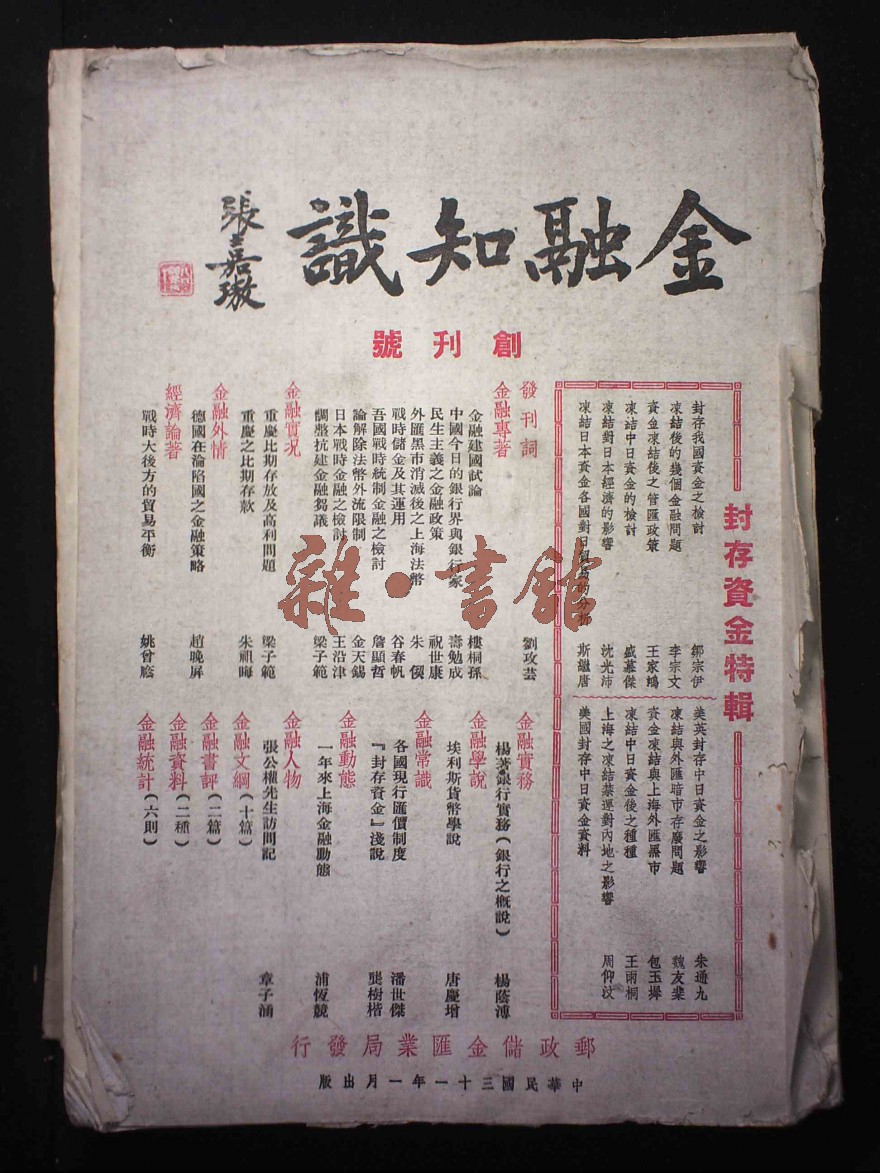 金融知識
張嘉璈
創刊號
封存資金特輯
封存我國資金之檢討 鄒宗伊
凍結後的幾個金融問題 李宗文
資金凍結後之管匯政策 王家鴻
凍結中日資金的檢討 盛慕傑
凍結對日本經濟的影響 沈光沛
凍結日本資金各國對日貿易的分析 斯繼唐
美英封存中日資金之影響 朱通九
凍結與外匯暗市存廢問題 魏友棐
資金凍結與上海外匯黑市 包玉墀
凍結中日資金後之種種 王雨桐
上海之凍結禁運對內地之影響 周仰汶
美國封存中日資金資料
發刊詞 劉攻芸
金融專著
金融建國試論 樓桐孫
中國今日的銀行界與銀行家 壽勉成
民生主義之金融政策 祝世康
外匯黑市消滅後之上海法幣 朱偰
戰時儲金及其運用 谷春帆
吾國戰時統制金融之檢討 詹顯哲
論解除法幣外流限制 金天錫
日本戰時金融之檢討 王沿津
調整抗建金融芻議 梁子範
金融實况
重慶比期存放及高利問題 梁子範
重慶之比期存款 朱祖晦
金融外情
德國在淪陷國之金融策略 趙晚屏
經濟論著
戰時大後方的貿易平衡 姚曾廕
金融實務
楊著銀行實務(銀行之概說) 楊蔭溥
金融學說
埃利斯貨幣學說 唐慶增
金融常識
各國現行匯價制度 潘世傑
『封存資金』淺說 龔樹楷
金融動態
一年來上海金融動態 浦恆兢
金融人物
張公權先生訪問記 章子涵
金融文綱(十篇)
金融書評(二篇)
金融資料(二種)
金融統計(六則)
郵政儲金匯業局發行
中華民國三十一年一月出版
雜·書館